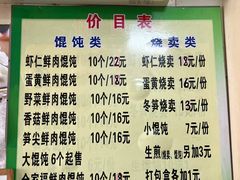 价目表
馄饨类 烧卖类
虾仁鲜肉馄饨 10个/22元 虾仁烧卖 18元/份
蛋黄鲜肉馄饨 10个/18元 蛋黄烧卖 16元/份
野菜鲜肉馄饨 10个/16元 冬笋烧卖 13元/份
香菇鲜肉馄饨 10个/16元 小馄饨 7元/份
笋尖鲜肉馄饨 10个/16元 生煎 另加3元
大馄饨6个起售 打包盒每个加1元
全家福鲜肉馄饨 10个/18元